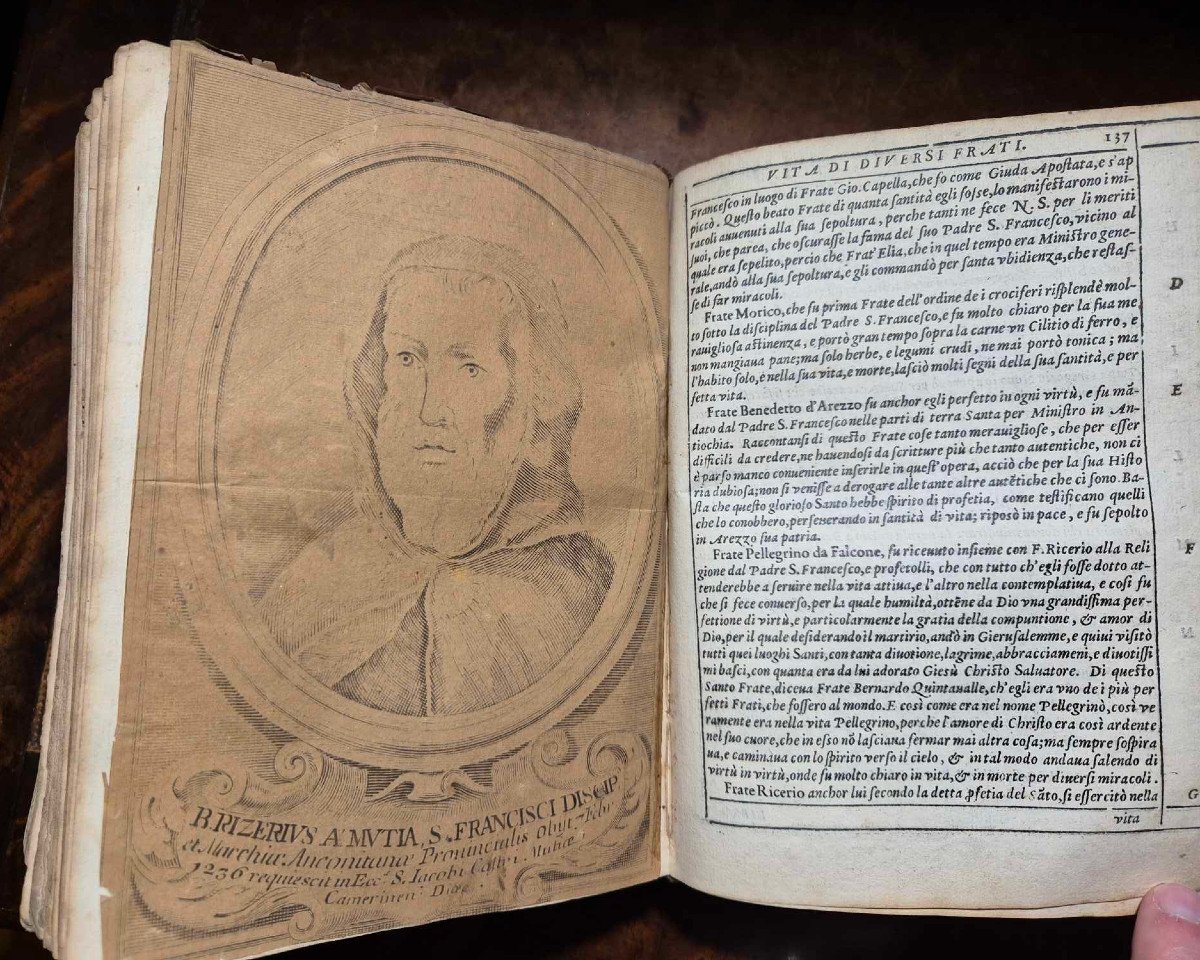 B. RIZERIVS A' MVTIA, S. FRANCISCI DISCIP
et Marchiæ Anconitanæ Prouincialis Obijt 7 Feb:
1236 requiescit in Eccª S. Iacobi Castri Mutiæ
Camerinen: Diœc
VITA DI DIVERSI FRATI. 137
Francesco in luogo di Frate Gio. Capella, che fo come Giuda Apostata, e s'ap
piccò. Questo beato Frate di quanta santità egli fosse, lo manifestarono i mi-
racoli auuenuti alla sua sepoltura, perche tanti ne fece N. S. per li meriti
suoi, che parea, che oscurasse la fama del suo Padre S. Francesco, vicino al
quale era sepelito, percio che Frat' Elia, che in quel tempo era Ministro gene-
rale, andò alla sua sepoltura, e gli commandò per santa vbidienza, che restas-
se di far miracoli.
Frate Morico, che fu prima Frate dell'ordine de i crociferi risplendè mol-
to sotto la disciplina del Padre S. Francesco, e fu molto chiaro per la sua me
rauigliosa astinenza, e portò gran tempo sopra la carne vn Cilitio di ferro, e
non mangiaua pane; ma solo herbe, e legumi crudi, ne mai portò tonica; ma
l'habito solo, e nella sua vita, e morte, lasciò molti segni della sua santità, e per
fetta vita.
Frate Benedetto d'Arezzo fu anchor egli perfetto in ogni virtù, e fu mã-
dato dal Padre S. Francesco nelle parti di terra Santa per Ministro in An-
tiochia. Raccontansi di questo Frate cose tanto merauigliose, che per esser
difficili da credere, ne hauendosi da scritture più che tanto autentiche, non ci
è parso manco conueniente inserirle in quest'opera, acciò che per la sua Histo
ria dubiosa; non si venisse a derogare alle tante altre autẽtiche che ci sono. Ba-
sta che questo glorioso Santo hebbe spirito di profetia, come testificano quelli
che lo conobbero, perseuerando in santità di vita; riposò in pace, e fu sepolto
in Arezzo sua patria.
Frate Pellegrino da Falcone, fu riceuuto insieme con F. Ricerio alla Reli
gione dal Padre S. Francesco, e profetolli, che con tutto ch'egli fosse dotto at-
tenderebbe a seruire nella vita attiua, e l'altro nella contemplatiua, e così fu
che si fece conuerso, per la quale humiltà, ottẽne da Dio vna grandissima per-
fettione di virtù, e particolarmente la gratia della compuntione, & amor di
Dio, per il quale desiderando il martirio, andò in Gierusalemme, e quiui visitò
tutti quei luoghi Santi, con tanta diuotione, lagrime, abbracciameni, e diuotissi
mi basci, con quanta era da lui adorato Giesù Christo Saluatore. Di questo
Santo Frate, diceua Frate Bernardo Quintaualle, ch'egli era vno de i più per
fetti Frati, che fossero al mondo. E così come era nel nome Pellegrino, così ve
ramente era nella vita Pellegrino, perche l'amore di Christo era così ardente
nel suo cuore, che in esso nõ lasciaua fermar mai altra cosa; ma sempre sospira
ua, e caminaua con lo spirito verso il cielo, & in tal modo andaua salendo di
virtù in virtù, onde fu molto chiaro in vita, & in morte per diuersi miracoli.
Frate Ricerio anchor lui secondo la detta ꝓfetia del Sãto, si essercitò nella
vita
D
E
F
G